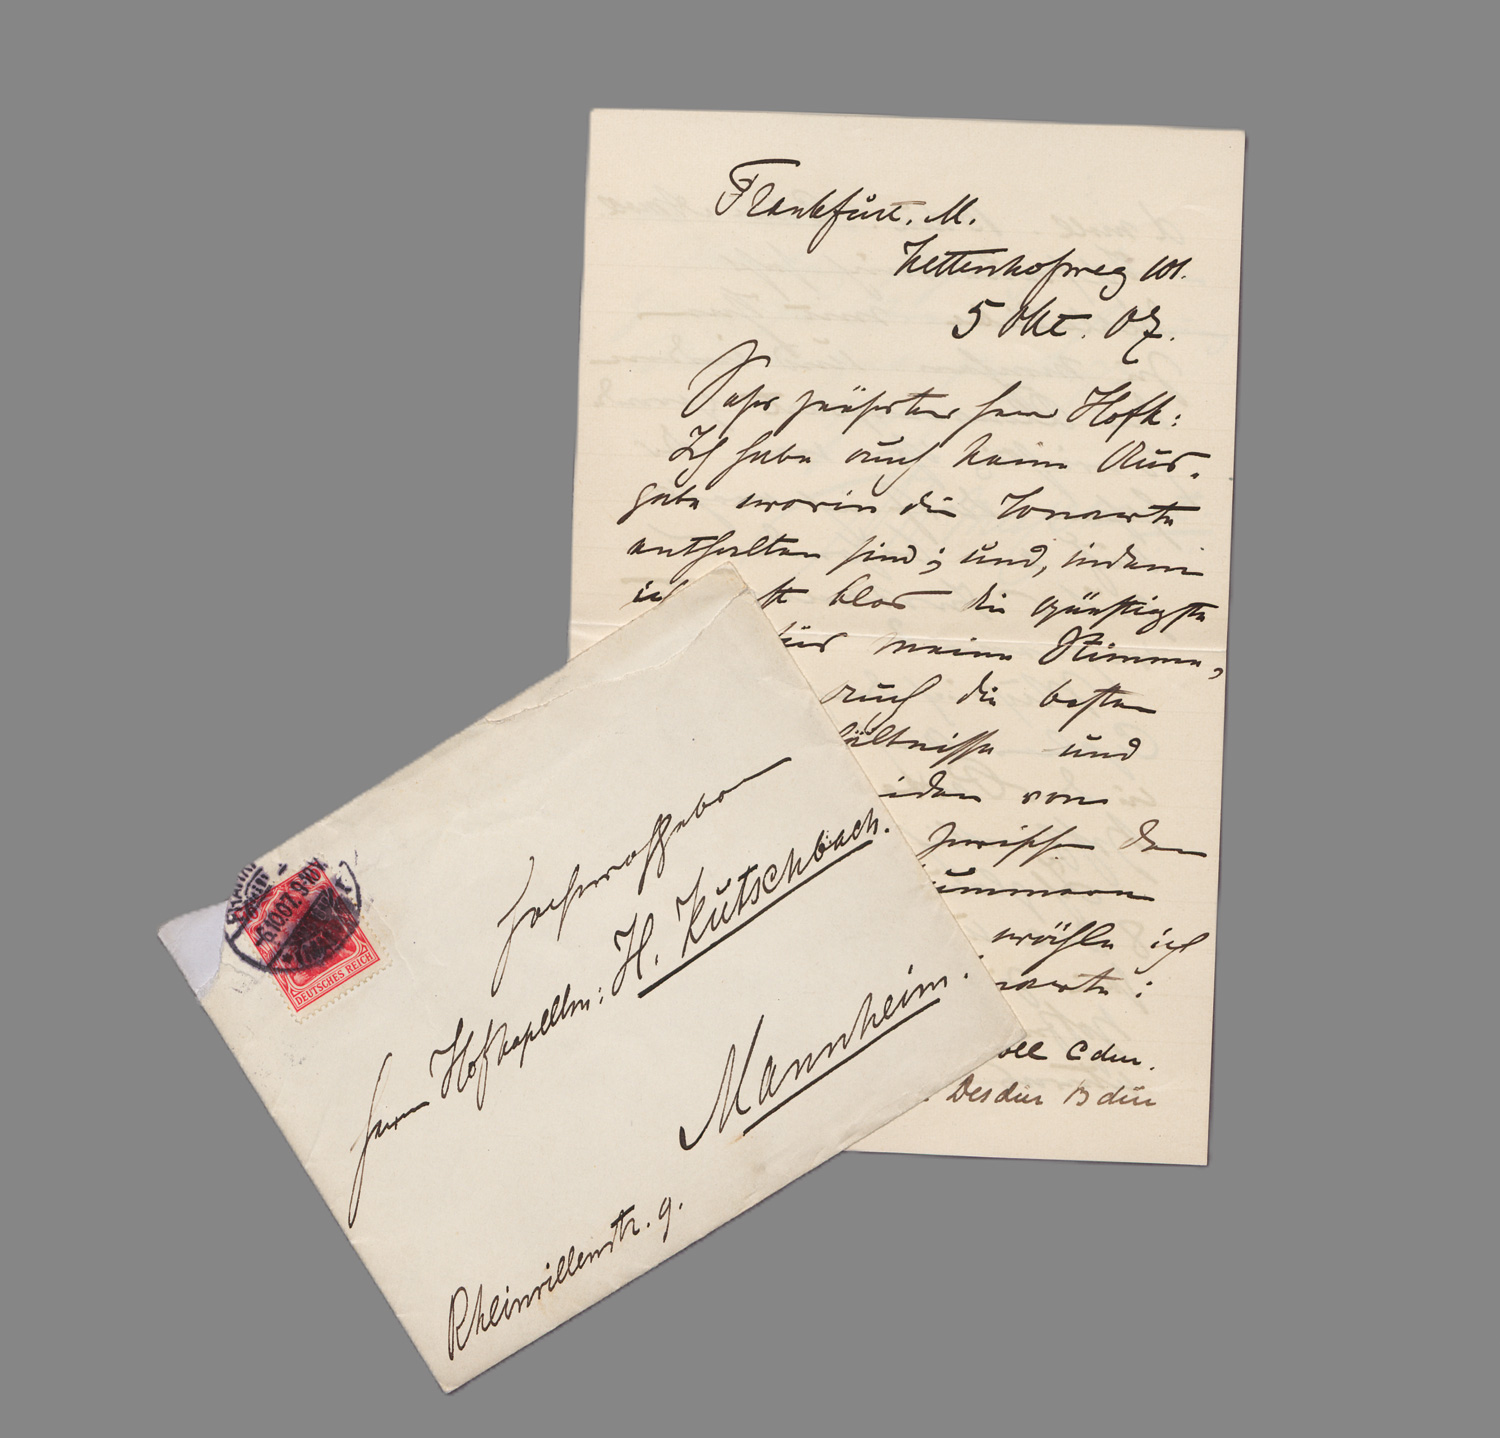 Frankfurt. M.
Kettenhofweg 101.
5 Okt. 07.
Sehr geehrter Herr Hofk:
Ich habe auch keine Aus-
gabe worin die Tonarten
enthalten sind; und, indem
ich blos die günstigste
für meine Stimme,
auch die besten
und
von
zwischen den
Nummern
wähle ich
:
moll C dur.
Des dur B dur
Hochwohlgeboren
Herrn Hofkapellm: H. Kutschbach.
Mannheim.
Rheinvillenstr. 9.
6.10.07. 9-10V.
DEUTSCHES REICH